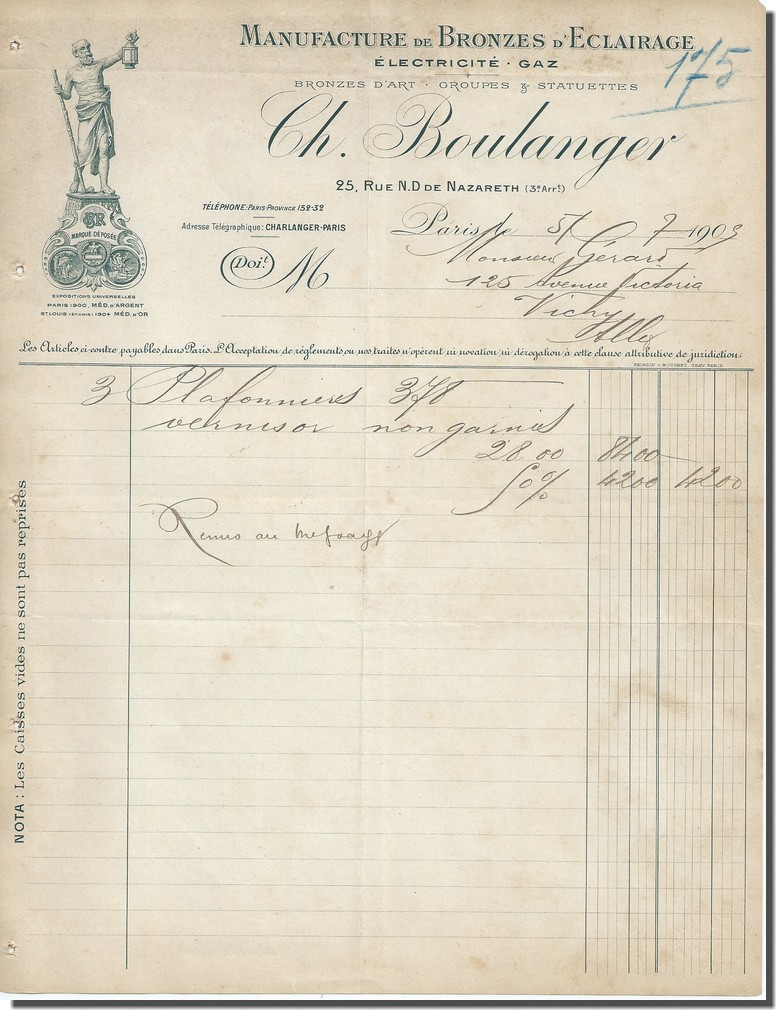 MANUFACTURE DE BRONZES D'ECLAIRAGE
ÉLECTRICITÉ · GAZ
175
BRONZES D'ART · GROUPES & STATUETTES
Ch. Boulanger
25, RUE N.D DE NAZARETH (3e Arrt)
TÉLÉPHONE: PARIS-PROVINCE 152-32
Adresse Télégraphique: CHARLANGER-PARIS
Paris, le 5/7 1909
Doit M
Monsieur Gérard
125 Avenue Victoria
Vichy
BR
MARQUE DÉPOSÉE
EXPOSITIONS UNIVERSELLES
PARIS 1900, MÉD. D'ARGENT
ST. LOUIS (ÉTATS UNIS) 1904 MÉD. D'OR
Les Articles ci-contre payables dans Paris. L'Acceptation de réglements ou nos traites n'opèrent ni novation ni dérogation à cette clause attributive de juridiction.
3 Plafonniers 378
vernis or non garnis
28.00 84 00
50% 42 00 42 00
Remis au message
NOTA : Les Caisses vides ne sont pas reprises